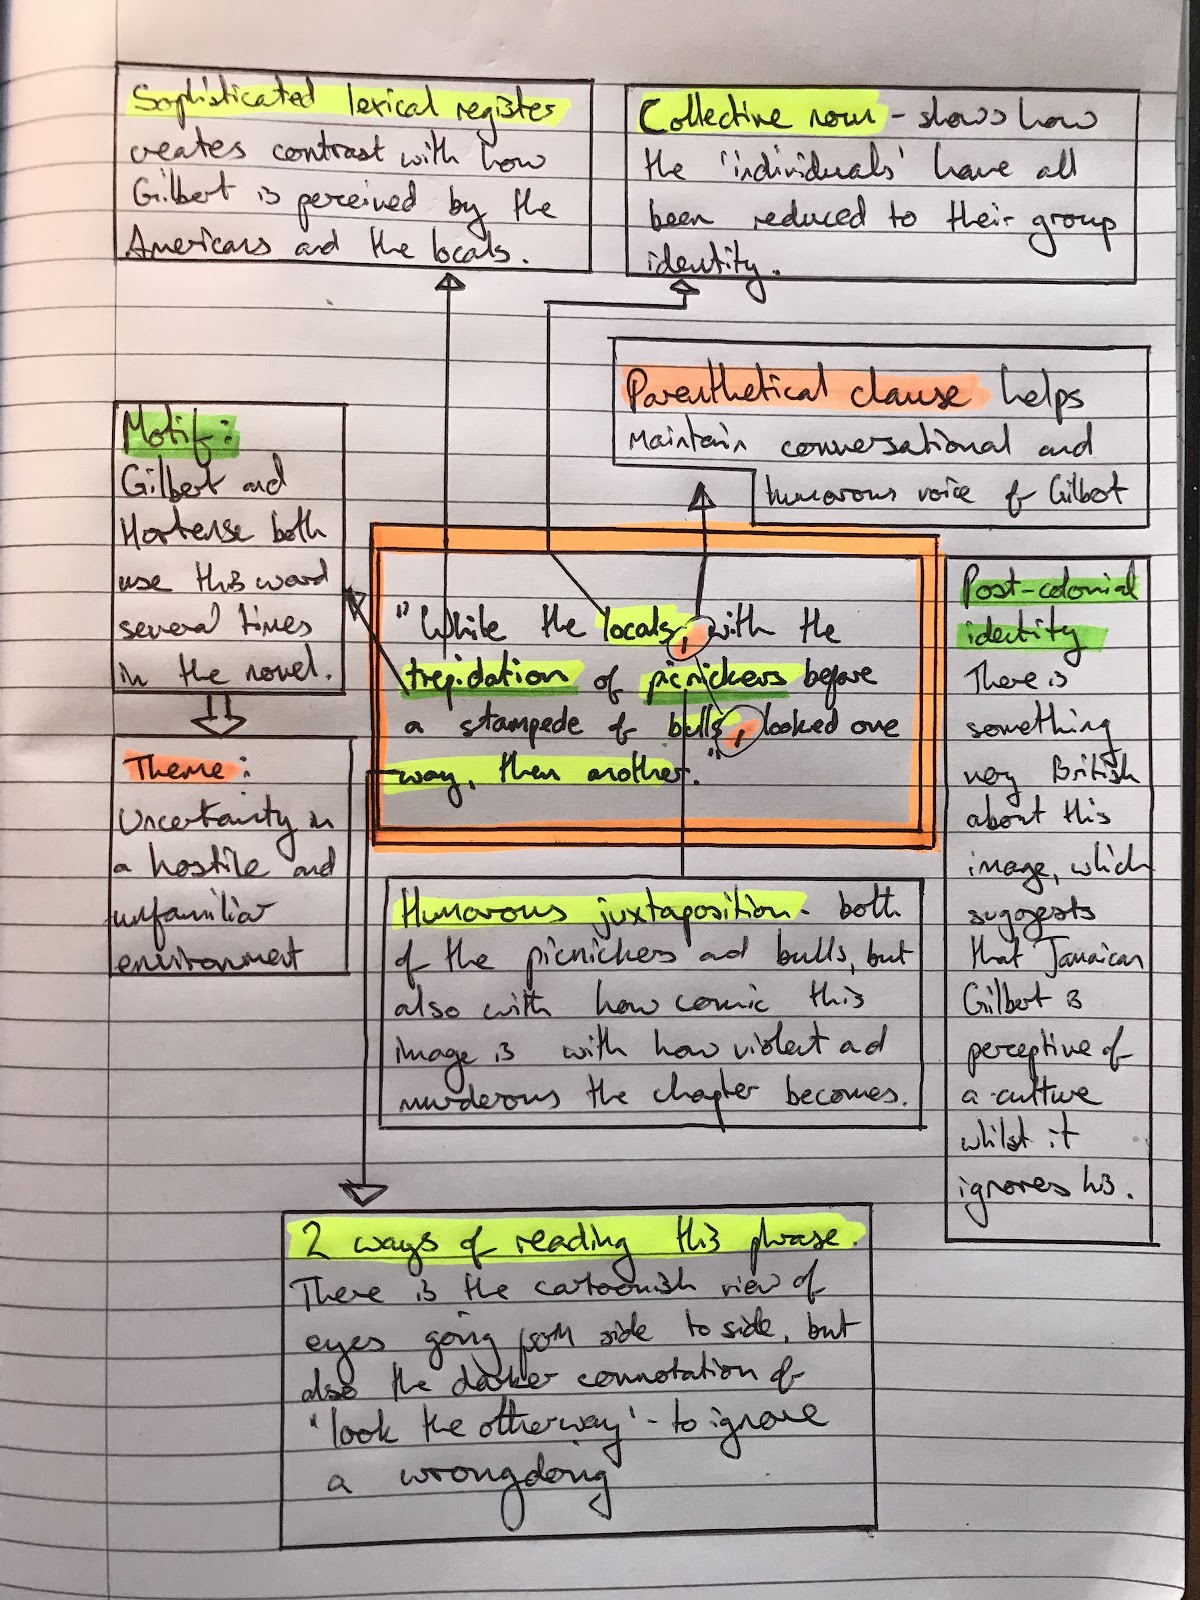 Sophisticated lexical register
creates contrast with how
Gilbert is perceived by the
Americans and the locals.
Collective noun - shows how
the 'individuals' have all
been reduced to their group
identity.
Parenthetical clause helps
maintain conversational and
humorous voice of Gilbert
Motif:
Gilbert and
Hortense both
use this word
several times
in the novel.
Theme:
Uncertainty in
a hostile and
unfamiliar
environment
"While the locals, with the
trepidation of picnickers before
a stampede of bulls, looked one
way, then another."
Post-colonial
identity
There is
something
very British
about this
image, which
suggests
that Jamaican
Gilbert is
perceptive of
a culture
whilst it
ignores his.
Humorous juxtaposition - both
of the picnickers and bulls, but
also with how comic this
image is with how violent and
murderous the chapter becomes.
2 ways of reading this phrase.
There is the cartoonish view of
eyes going from side to side, but
also the darker connotation of
'look the other way' - to ignore
a wrongdoing